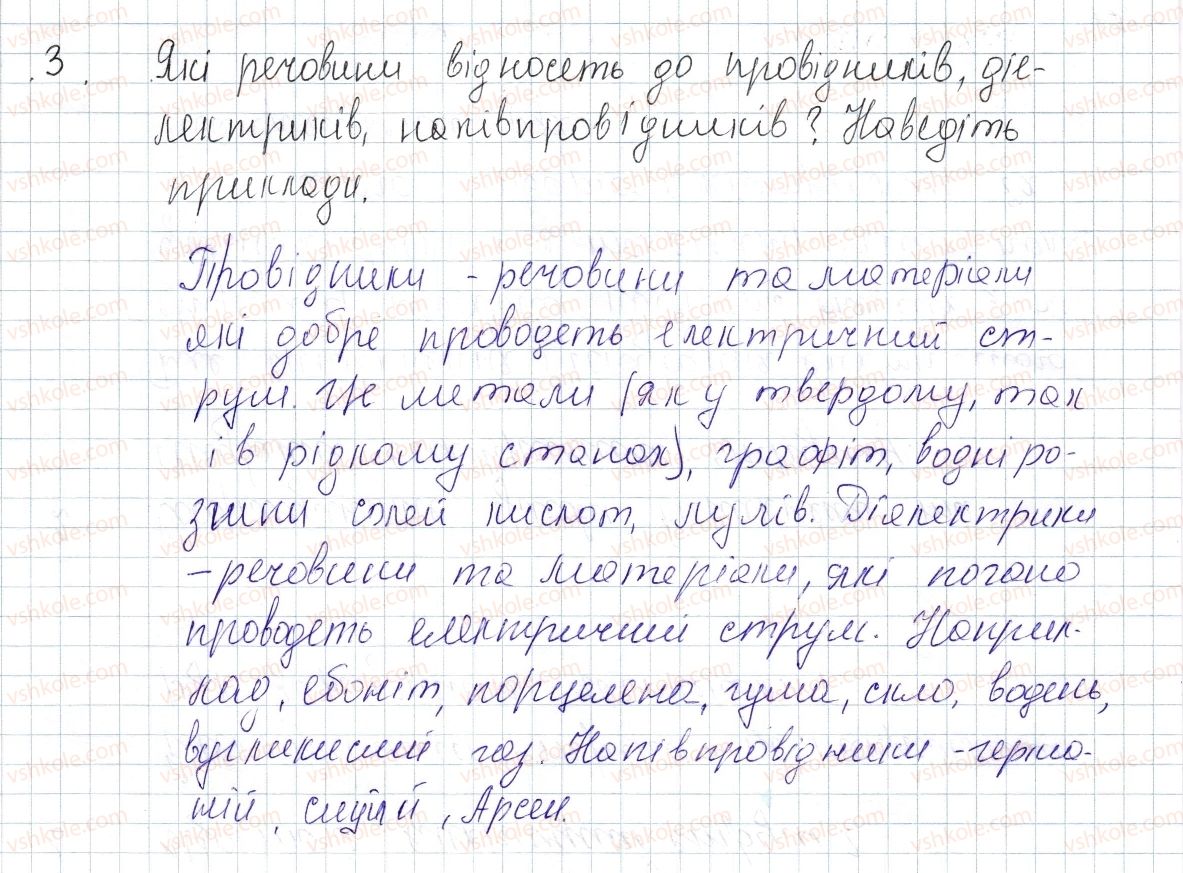 3. Які речовини відносеть до провідників, діе-
лектриків, напівпровідників? Наведіть
приклади.
Провідники - речовини та матеріали
які добре проводеть електричний ст-
рум. Це метали (як у твердому, так
і в рідкому станах), графіт, водні ро-
зчини солей кислот, лугів. Діялектрики
- речовини та матеріали, які погано
проводеть електричний струм. Наприк-
лад, ебоніт, порцелена, гума, скло, водень,
вугликислий газ. Напівпровідники - герма-
ній, силіцій, Арсен.